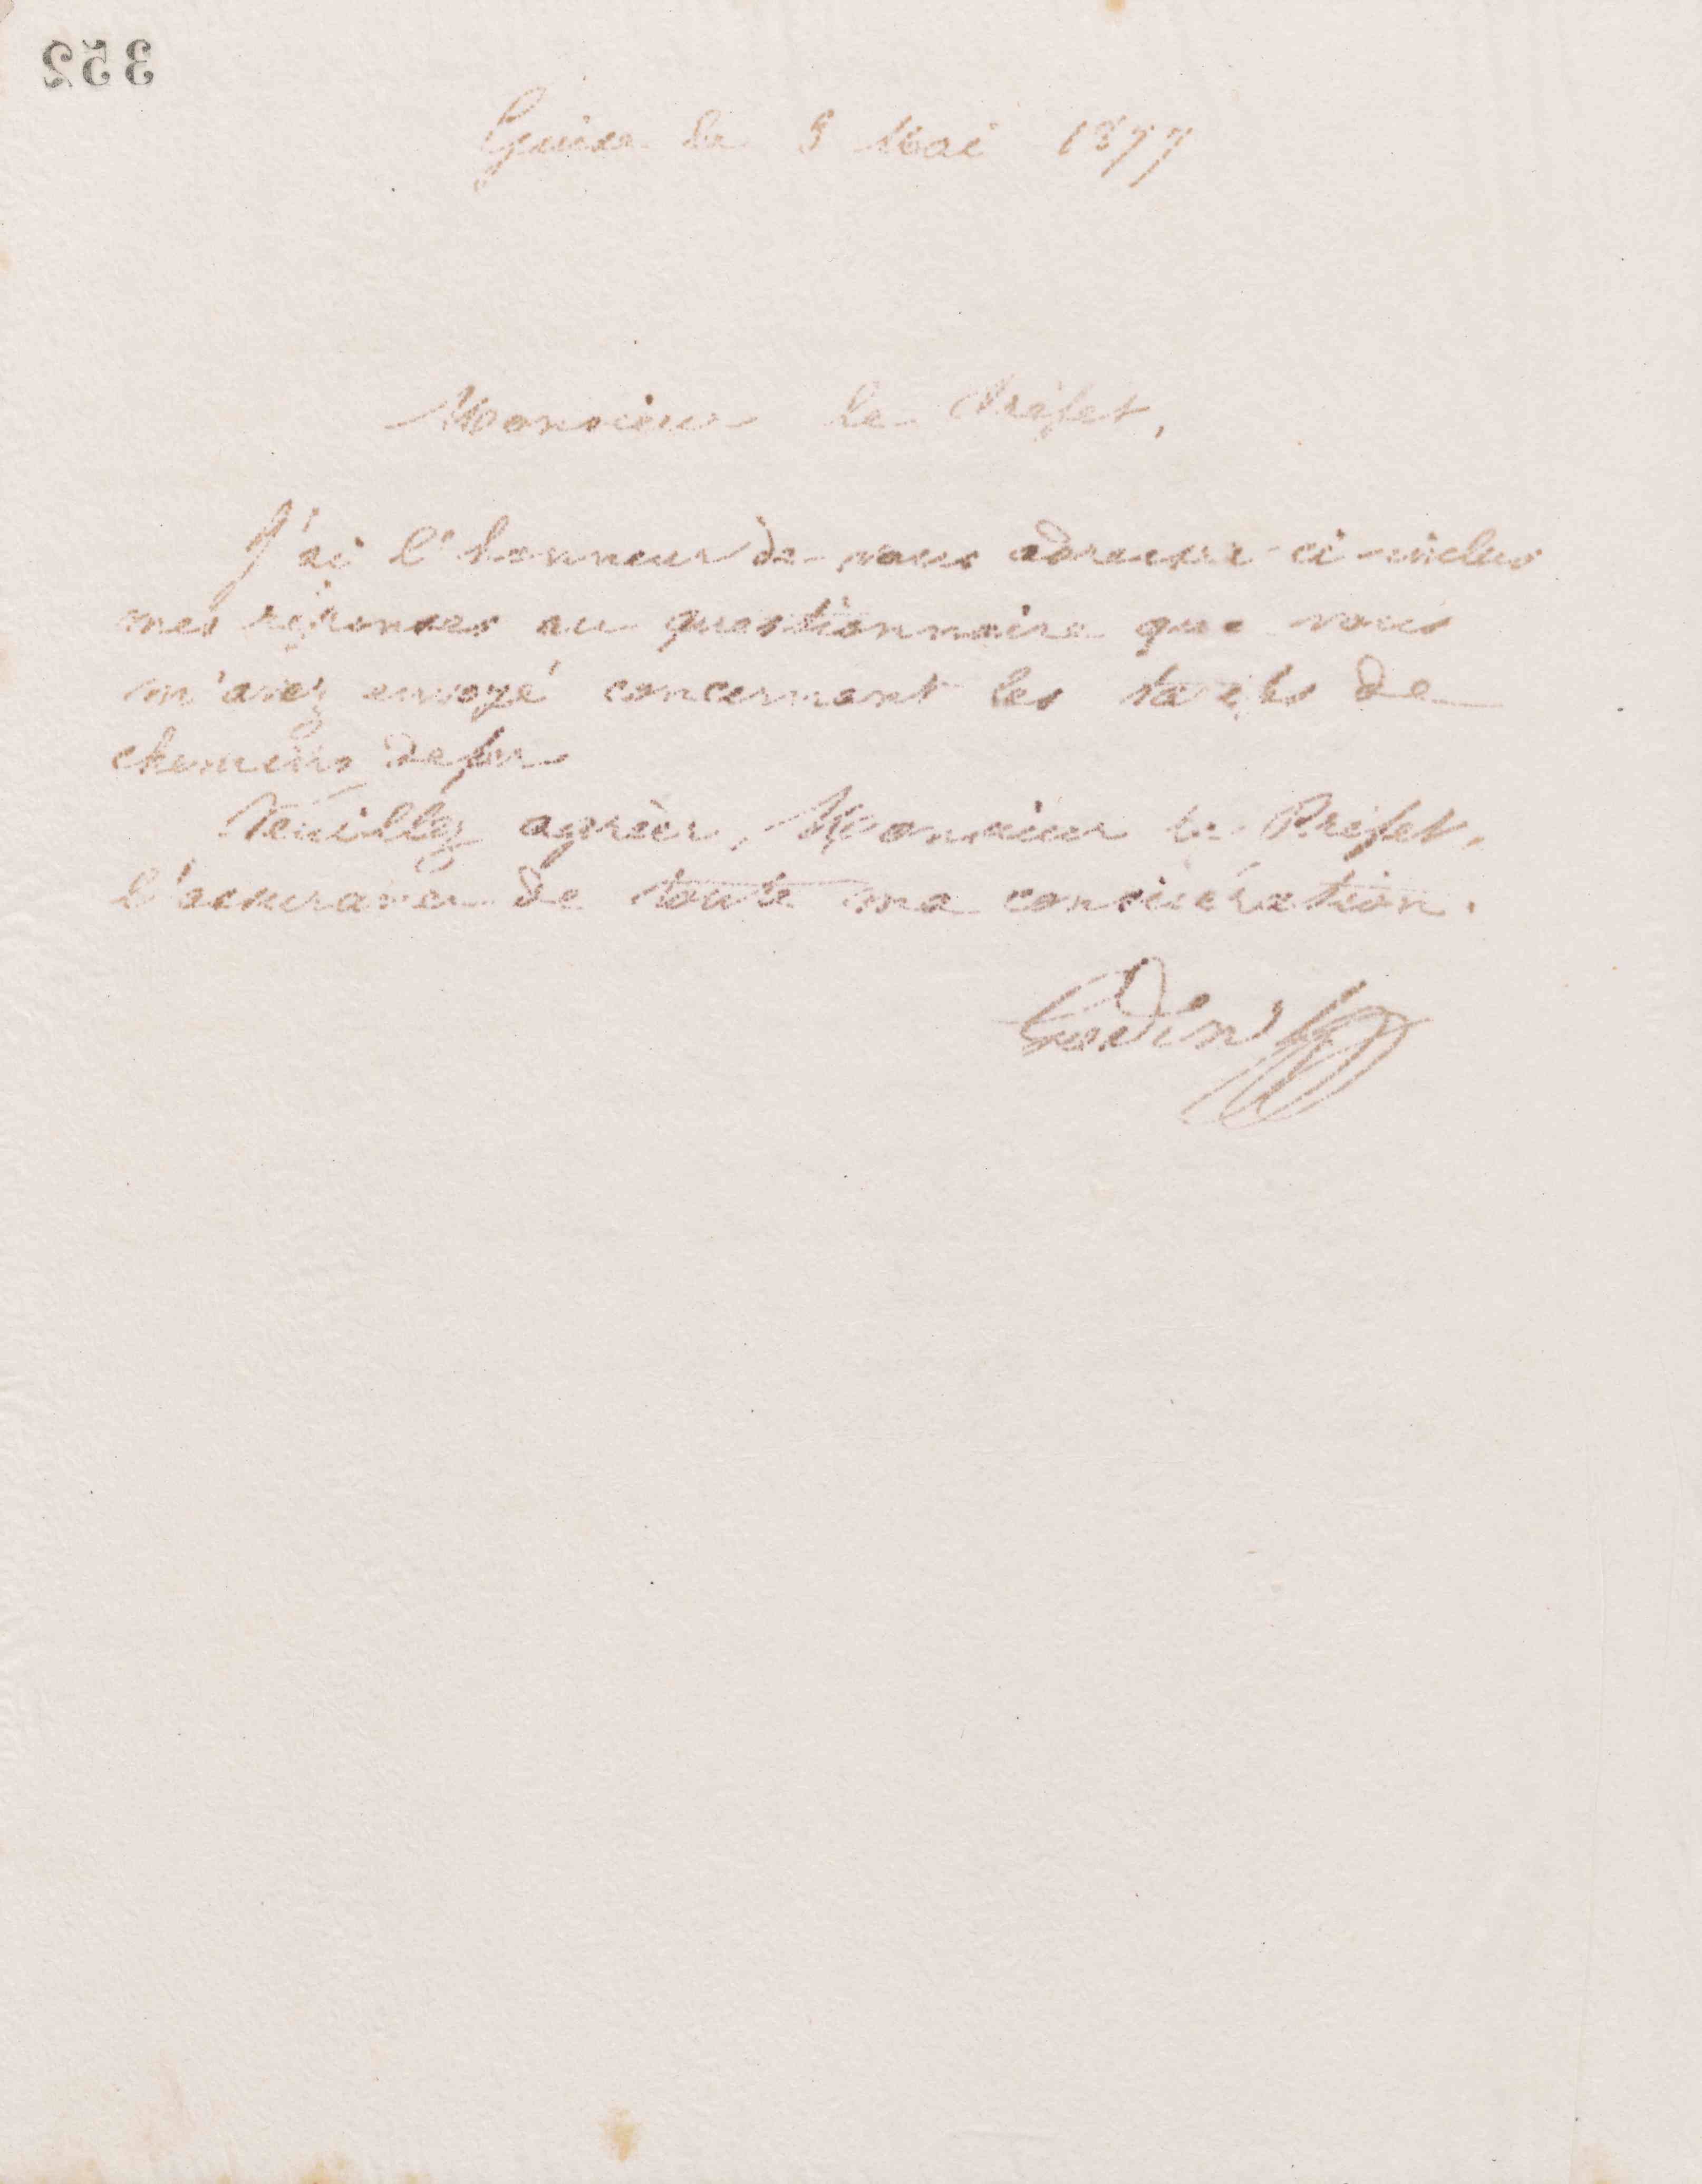 352
Guise le 5 Mai 1877
Monsieur le Préfet,
J'ai l'honneur de vous adresser ci-inclus
mes réponses au questionnaire que vous
m'avez envoyé concernant les tarifs de
chemins de fer
Veuillez agréer, Monsieur le Préfet,
l'assurance de toute ma considération.
Godin